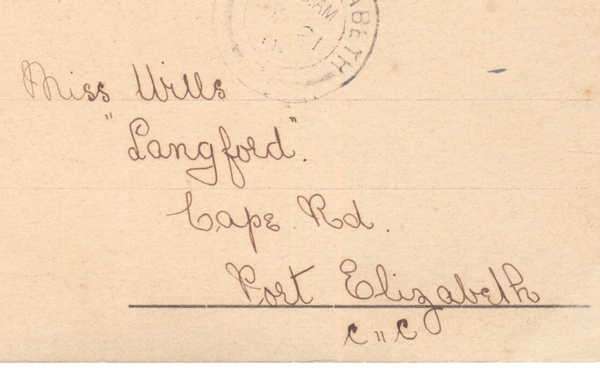 AM
ABETH
Miss Wills
"Langford".
Cape Rd.
Port Elizabeth
C"C